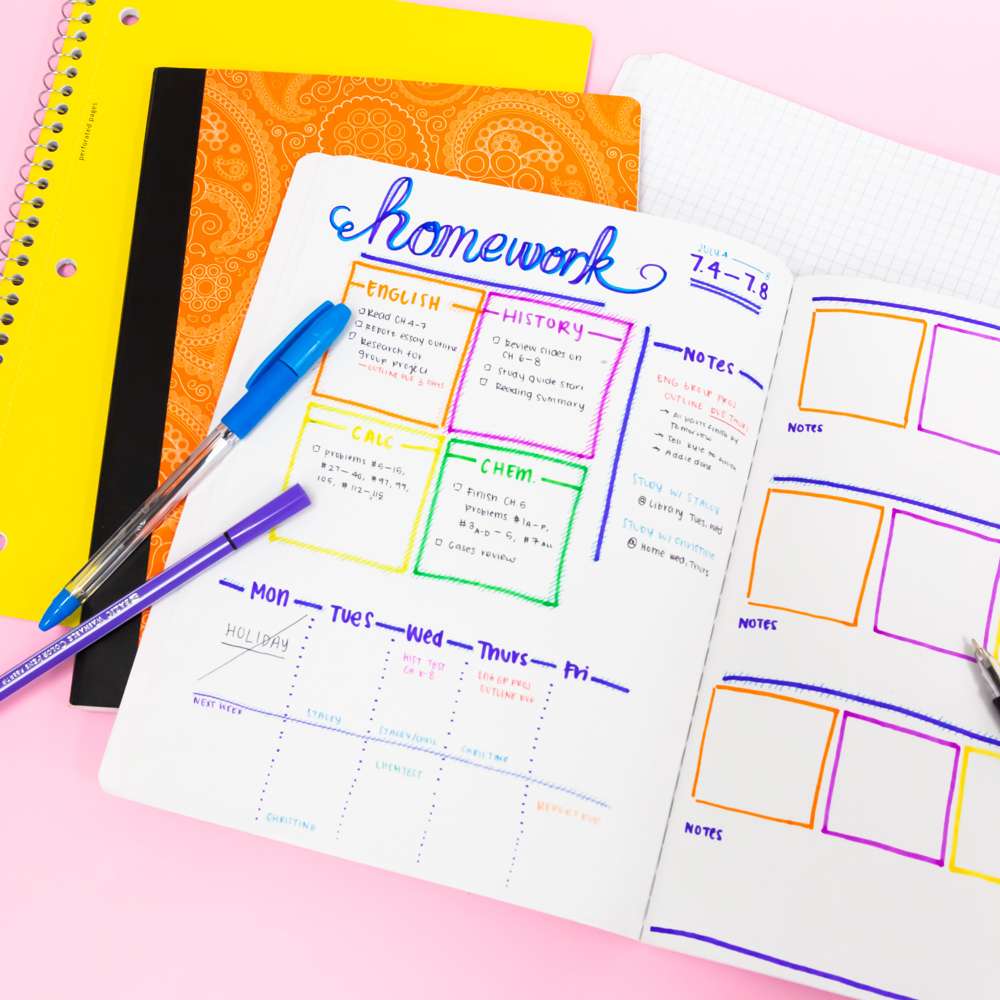 perforated pages
homework
JULY 4
8
7.4 – 7.8
ENGLISH
Read CH 4-7
Report essay outline
Research for
group project
— OUTLINE DUE 3 DAYS
HISTORY
Review slides on
CH 6-8
Study guide start
Reading summary
CALC
problems #5-15,
#27-46, #97, 99,
105, #112-118
CHEM.
Finish CH 5
problems #1A-P,
#3A-D – 5, #7ALL
Gases review
NOTES
ENG GROUP PROJ
OUTLINE DUE THURS
→ All parts finish by
Tomorrow
→ Tell Kyle to
→ Addie
STUDY W/ STACEY
@ Library Tues, Wed
STUDY W/ CHRISTINE
@ Home Wed, Thurs
MON
TUES
WED
THURS
FRI
HOLIDAY
HIST. TEST
CH 6-8
ENG GP PROJ
OUTLINE DUE
NEXT WEEK
STACEY
STACEY/CHRIS
CHRISTINE
CHEM TEST
CHRISTINE
REPORT DUE
NOTES
NOTES
NOTES